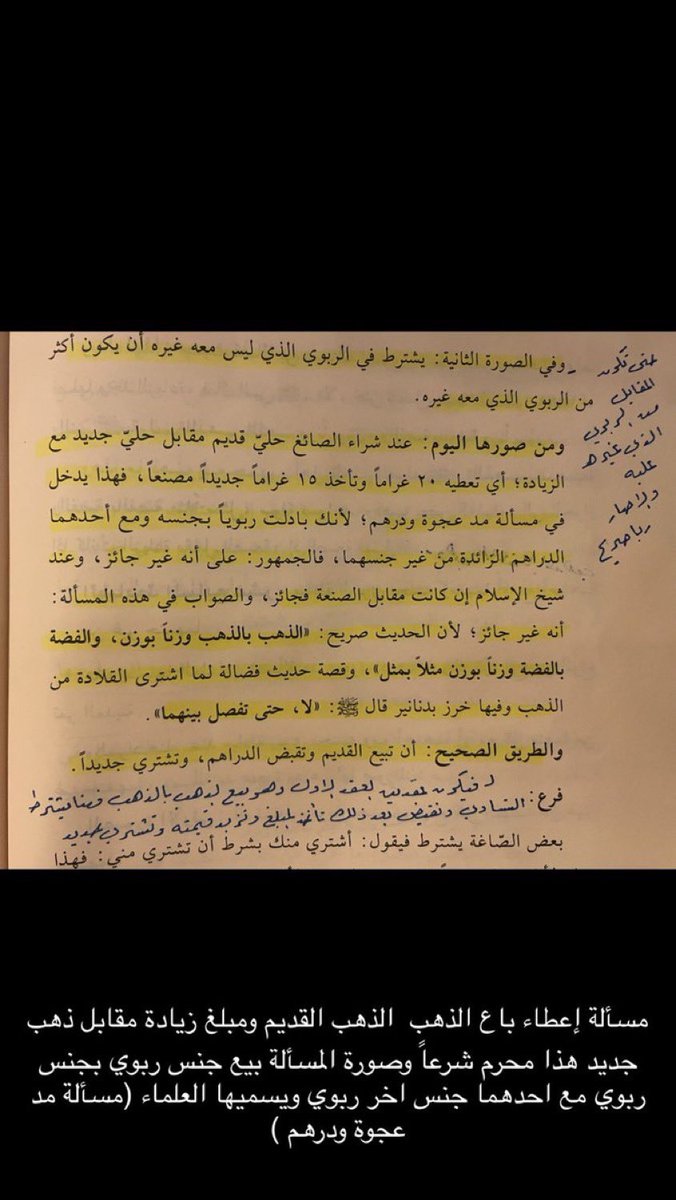 ـ وفي الصورة الثانية: يشترط في الربوي الذي ليس معه غيره أن يكون أكثر
من الربوي الذي معه غيره.
ومن صورها اليوم: عند شراء الصائغ حليّ قديم مقابل حليّ جديد مع
الزيادة؛ أي تعطيه ٢٠ غراماً وتأخذ ١٥ غراماً جديداً مصنعاً، فهذا يدخل
في مسألة مد عجوة ودرهم؛ لأنك بادلت ربوياً بجنسه ومع أحدهما
الدراهم الزائدة من غير جنسهما، فالجمهور: على أنه غير جائز، وعند
شيخ الإسلام إن كانت مقابل الصنعة فجائز، والصواب في هذه المسألة:
أنه غير جائز؛ لأن الحديث صريح: «الذهب بالذهب وزناً بوزن، والفضة
بالفضة وزناً بوزن مثلاً بمثل»، وقصة حديث فضالة لما اشترى القلادة من
الذهب وفيها خرز بدنانير قال ﷺ: «لا، حتى تفصل بينهما».
والطريق الصحيح: أن تبيع القديم وتقبض الدراهم، وتشتري جديداً.
فرع:
بعض الصّاغة يشترط فيقول: أشتري منك بشرط أن تشتري مني: فهذا
حتى تكون
المقابل
الربوي
الذي غيره
عليه
وإلا صار
ربا صريح
وهو بيع الذهب بالذهب
بعد ذلك تأخذ المبلغ وتزيد قيمته وتشتري جديد
مسألة إعطاء باع الذهب الذهب القديم ومبلغ زيادة مقابل ذهب
جديد هذا محرم شرعاً وصورة المسألة بيع جنس ربوي بجنس
ربوي مع احدهما جنس اخر ربوي ويسميها العلماء (مسألة مد
عجوة ودرهم )